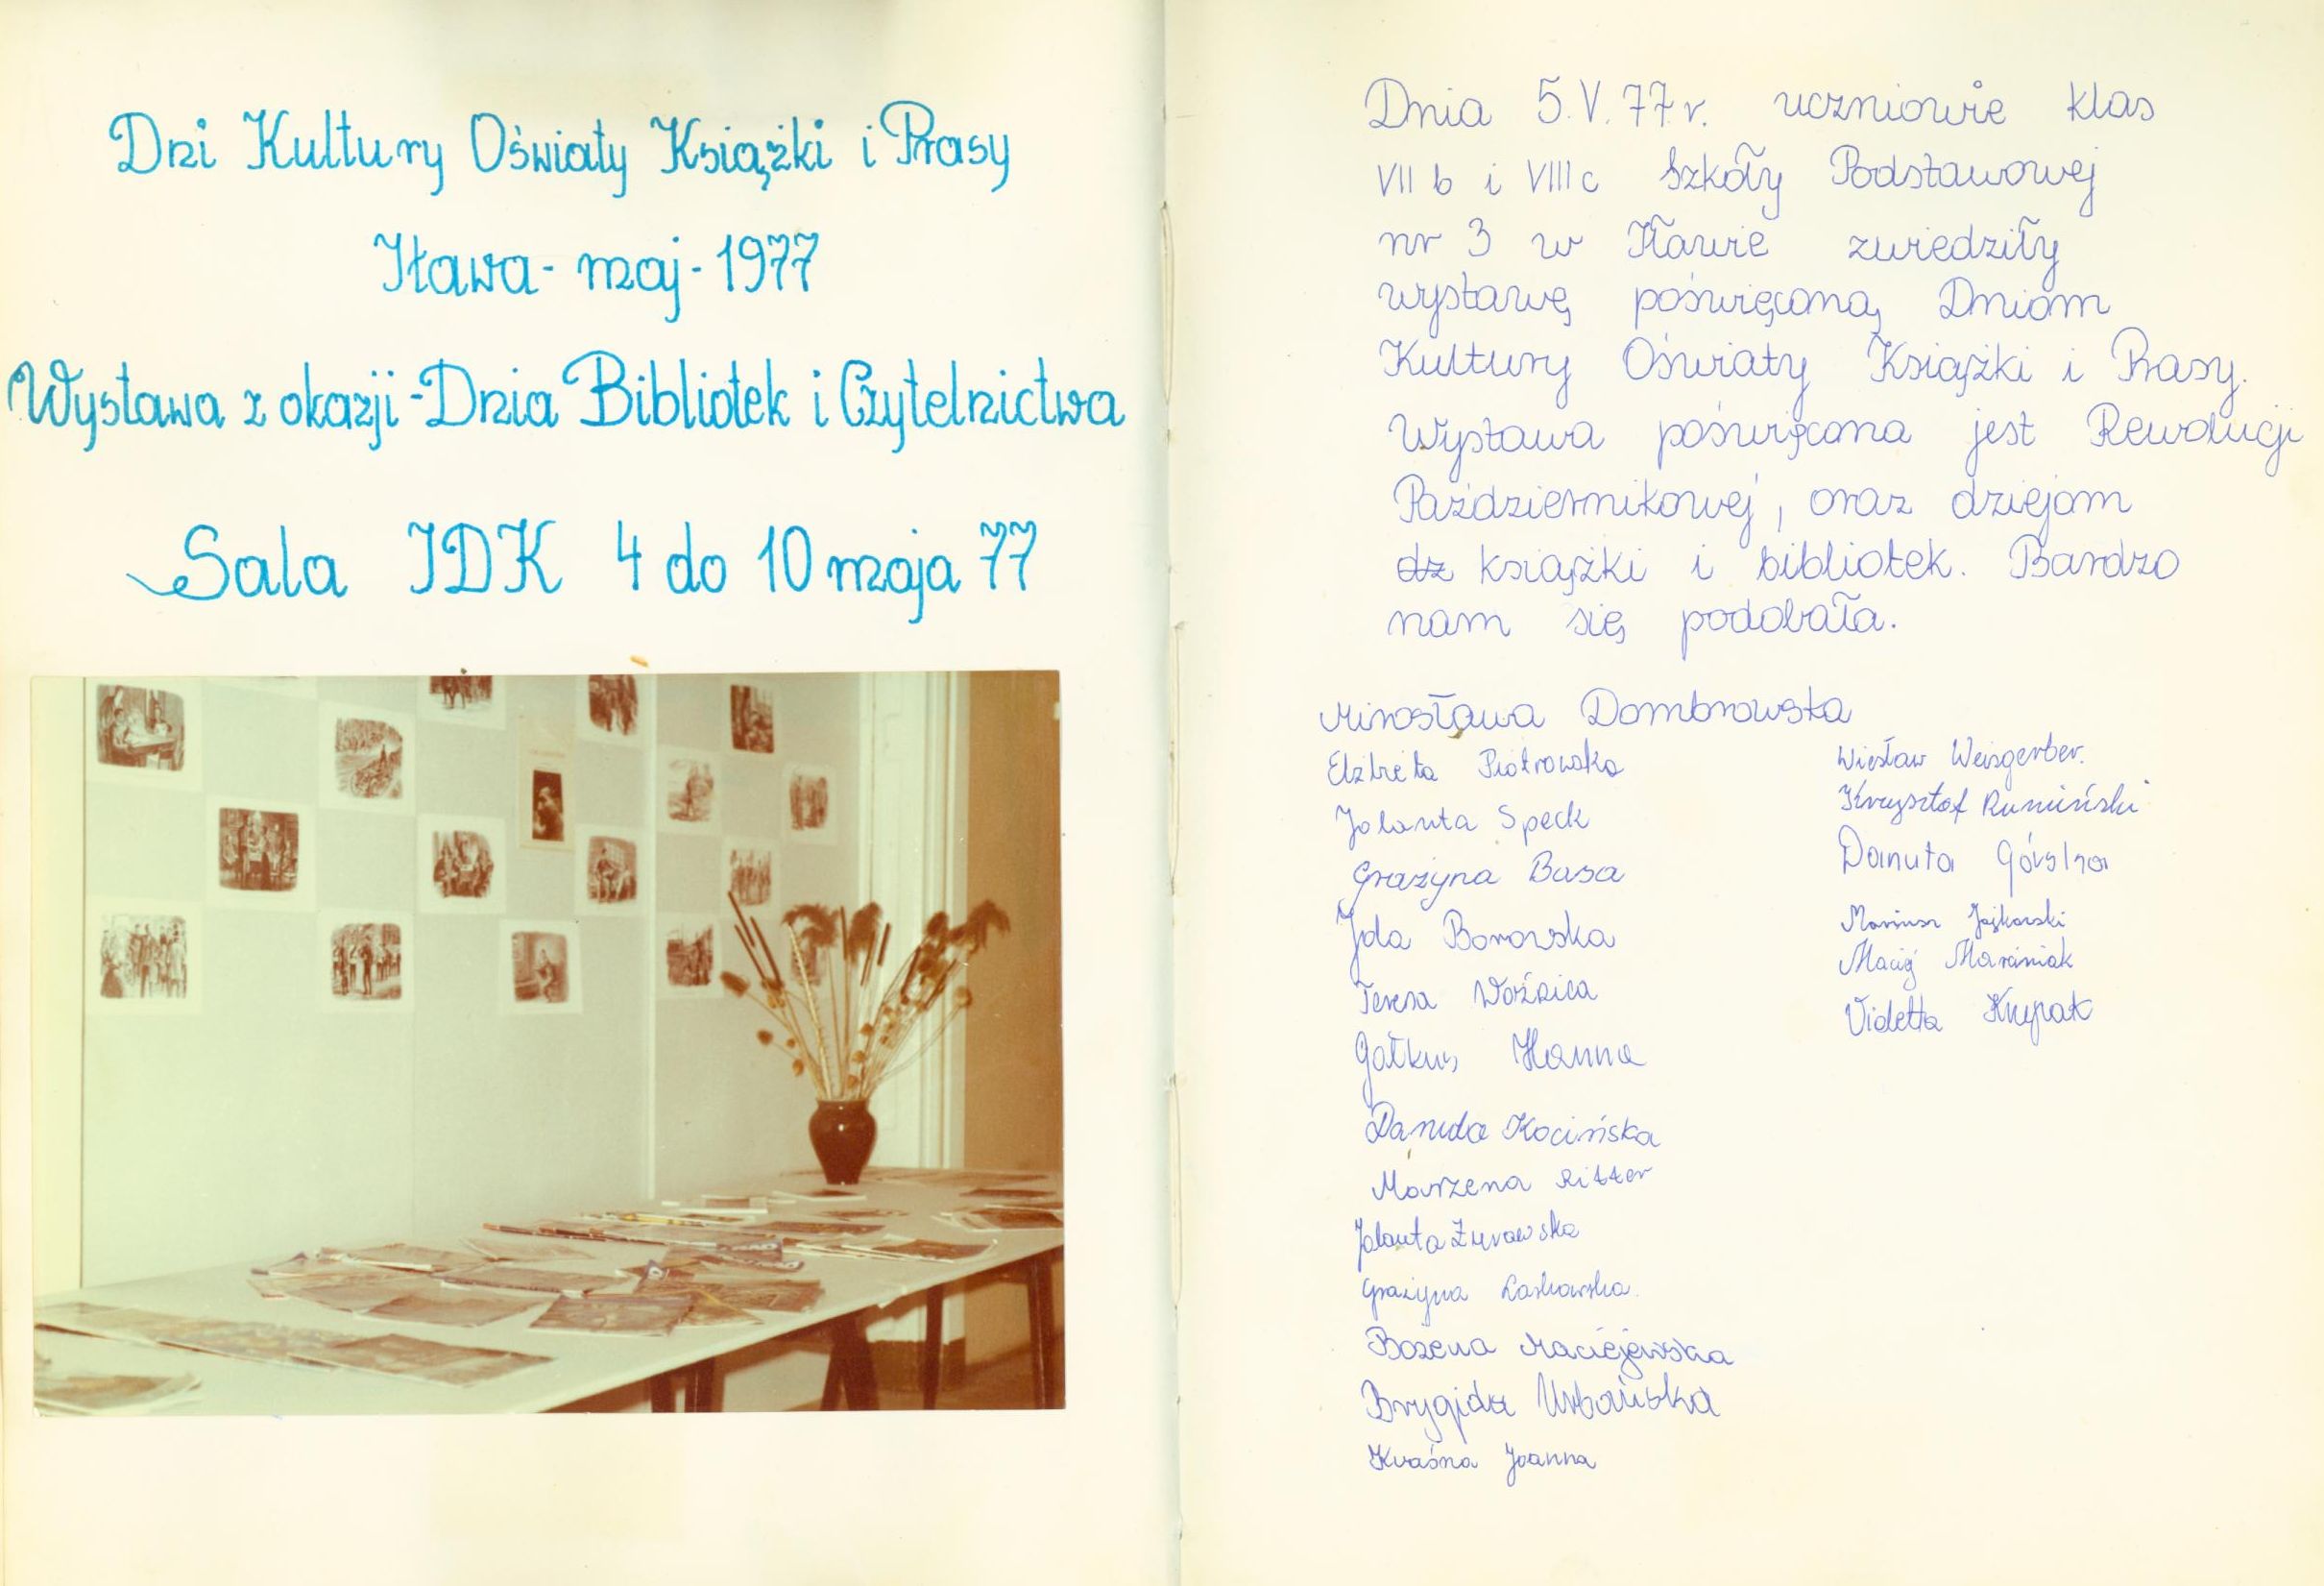 Dni Kultury Oświaty Książki i Prasy
Iława - maj - 1977
Wystawa z okazji - Dnia Bibliotek i Czytelnictwa
Sala IDK 4 do 10 maja 77
Dnia 5.V.77r. uczniowie klas
VII b i VIII c Szkoły Podstawowej
nr 3 w Iławie zwiedziły
wystawę poświęconą Dniom
Kultury Oświaty Książki i Prasy.
Wystawa poświęcona jest Rewolucji
Październikowej, oraz dziejom
dz książki i bibliotek. Bardzo
nam się podobała.
Mirosława Dombrowska
Elżbieta Piotrowska
Jolanta Speck
Grażyna Basa
Ida Borowska
Teresa Woźnica
Gałkus Hanna
Danuta Kocińska
Marzena Ritter
Jolanta Żurawska
Grażyna Laskowska.
Bożena Maciejewska
Brygida Urbańska
Kwaśna Joanna
Wiesław Weisgerber.
Krzysztof Rumiński
Danuta Górska
Mariusz
Maciej Marciniak
Violetta